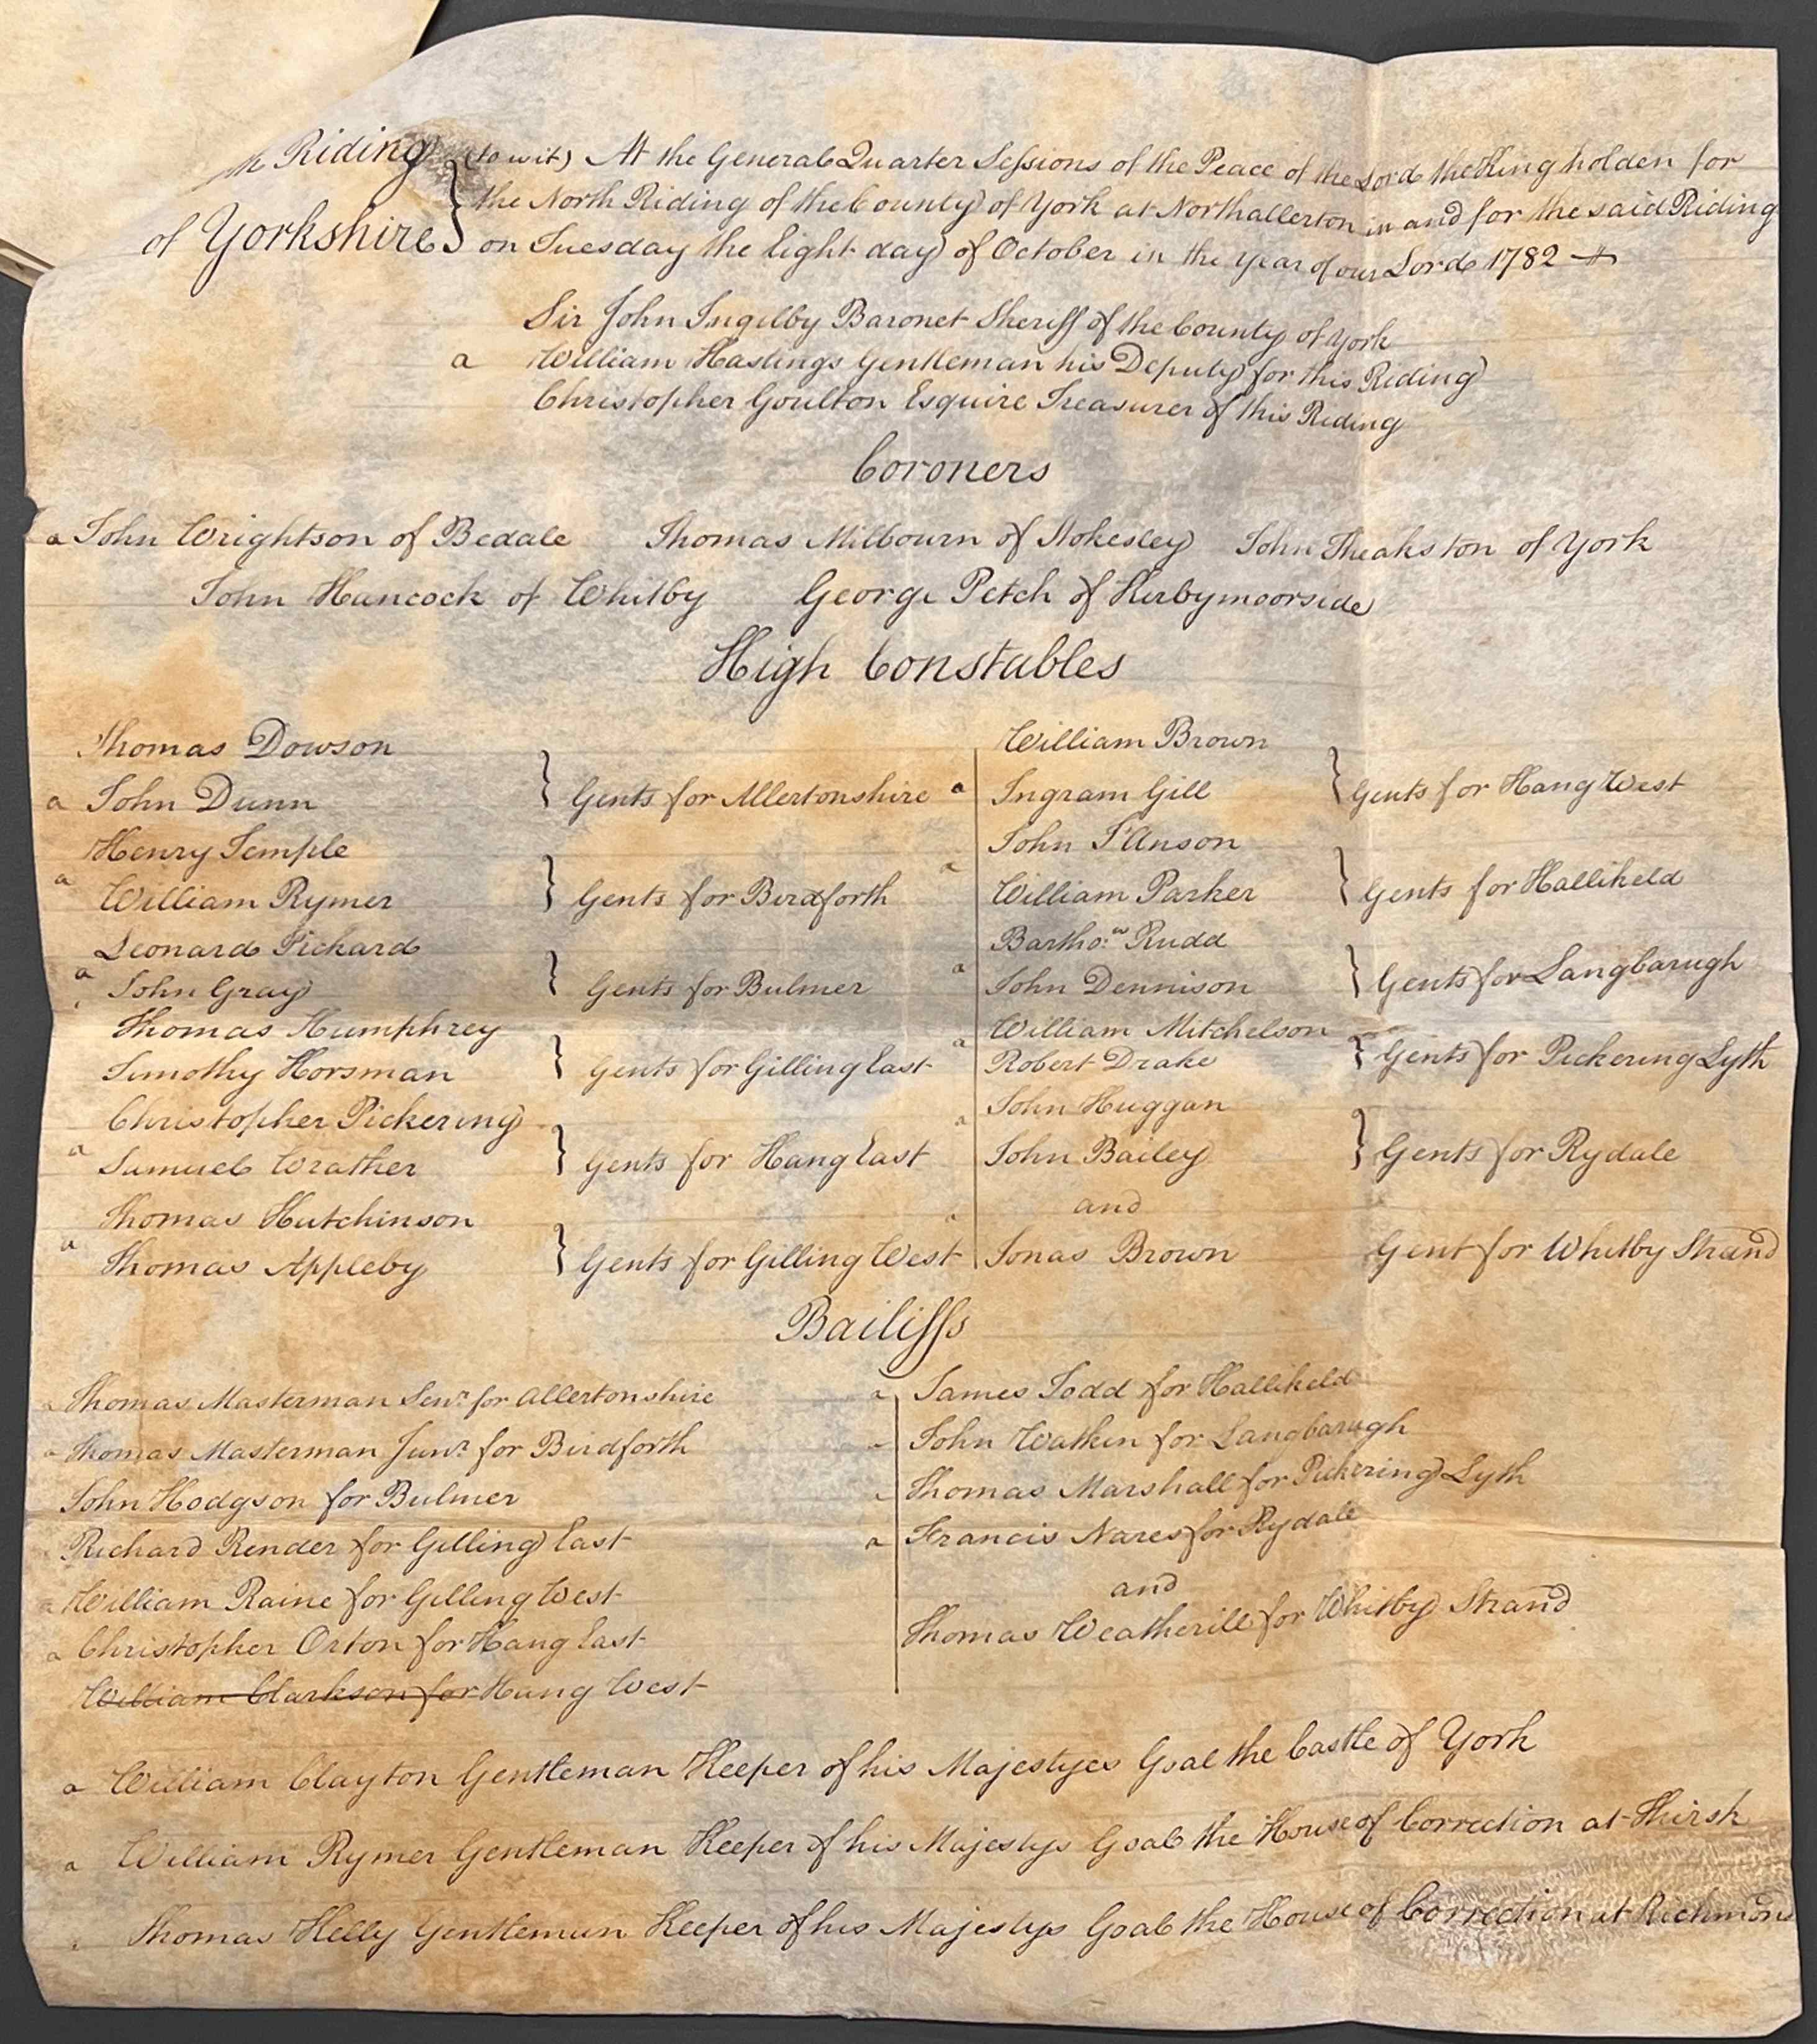 h Riding (to wit) At the General Quarter Sessions of the Peace of the Lord the King holden for
the North Riding of the County of York at Northallerton in and for the said Riding
of Yorkshire } on Tuesday the Eight day of October in the year of our Lord 1782
Sir John Ingilby Baronet Sheriff of the County of York
a William Hastings Gentleman his Deputy for this Riding
Christopher Goulton Esquire Treasurer of this Riding
Coroners
a John Wrightson of Bedale Thomas Milbourn of Stokesley John Theakston of York
John Hancock of Whitby George Petch of Kirbymoorside
High Constables
Thomas Dowson
a John Dunn } Gents for Allertonshire
Henry Temple
a William Rymer } Gents for Birdforth
Leonard Pickard
a John Gray } Gents for Bulmer
Thomas Humphrey
Timothy Horsman } Gents for Gilling East
Christopher Pickering
a Samuel Wrather } Gents for Hang East
Thomas Hutchinson
a Thomas Appleby } Gents for Gilling West
William Brown
a Ingram Gill } Gents for Hang West
John I'Anson
a William Parker } Gents for Hallikeld
Bartho:w Rudd
a John Dennison } Gents for Langbarugh
William Mitchelson
a Robert Drake } Gents for Pickering Lyth
John Huggan
a John Bailey } Gents for Rydale
and
a Jonas Brown Gent for Whitby Strand
Bailiffs
a Thomas Masterman Senr for Allertonshire
a Thomas Masterman Junr for Birdforth
John Hodgson for Bulmer
Richard Render for Gilling East
a William Raine for Gilling West
a Christopher Orton for Hang East
William Clarkson for Hang West
a James Todd for Hallikeld
a John Watkin for Langbarugh
a Thomas Marshall for Pickering Lyth
a Francis Nares for Rydale
and
Thomas Weatherill for Whitby Strand
a William Clayton Gentleman Keeper of his Majestyes Goal the Castle of York
a William Rymer Gentleman Keeper of his Majestys Goal the House of Correction at Thirsk
Thomas Kelly Gentleman Keeper of his Majestys Goal the House of Correction at Richmond